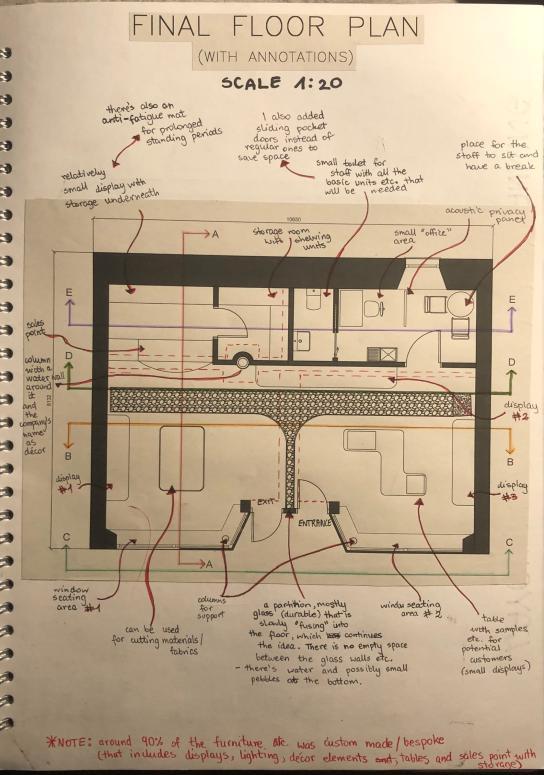 FINAL FLOOR PLAN
(WITH ANNOTATIONS)
SCALE 1:20
there's also an
anti-fatigue mat
for prolonged
standing periods
I also added
sliding pocket
doors instead of
regular ones to
save space
place for the
staff to sit and
have a break
relatively
small display with
storage underneath
small toilet for
staff with all the
basic units etc. that
will be needed
acoustic privacy
panel
storage room
with shelving
units
small "office"
area
10600
A
E
E
sales
point
D
D
column
with a
water wall
around
it
and
the
company's
name
as
décor
display
#2
B
B
display
#1
display
#3
EXIT
ENTRANCE
C
A
C
window
seating
area #1
columns
for
support
a partition, mostly
glass (durable) that is
slowly "fusing" into
the floor, which continues
the idea. There is no empty space
between the glass walls etc.
- there's water and possibly small
pebbles at the bottom.
window seating
area #2
can be used
for cutting materials/
fabrics
table
with samples
etc. for
potential
customers
(small displays)
*NOTE: around 90% of the furniture etc. was custom made / bespoke
(that includes displays, lighting, décor elements and, tables and sales point with
storage)